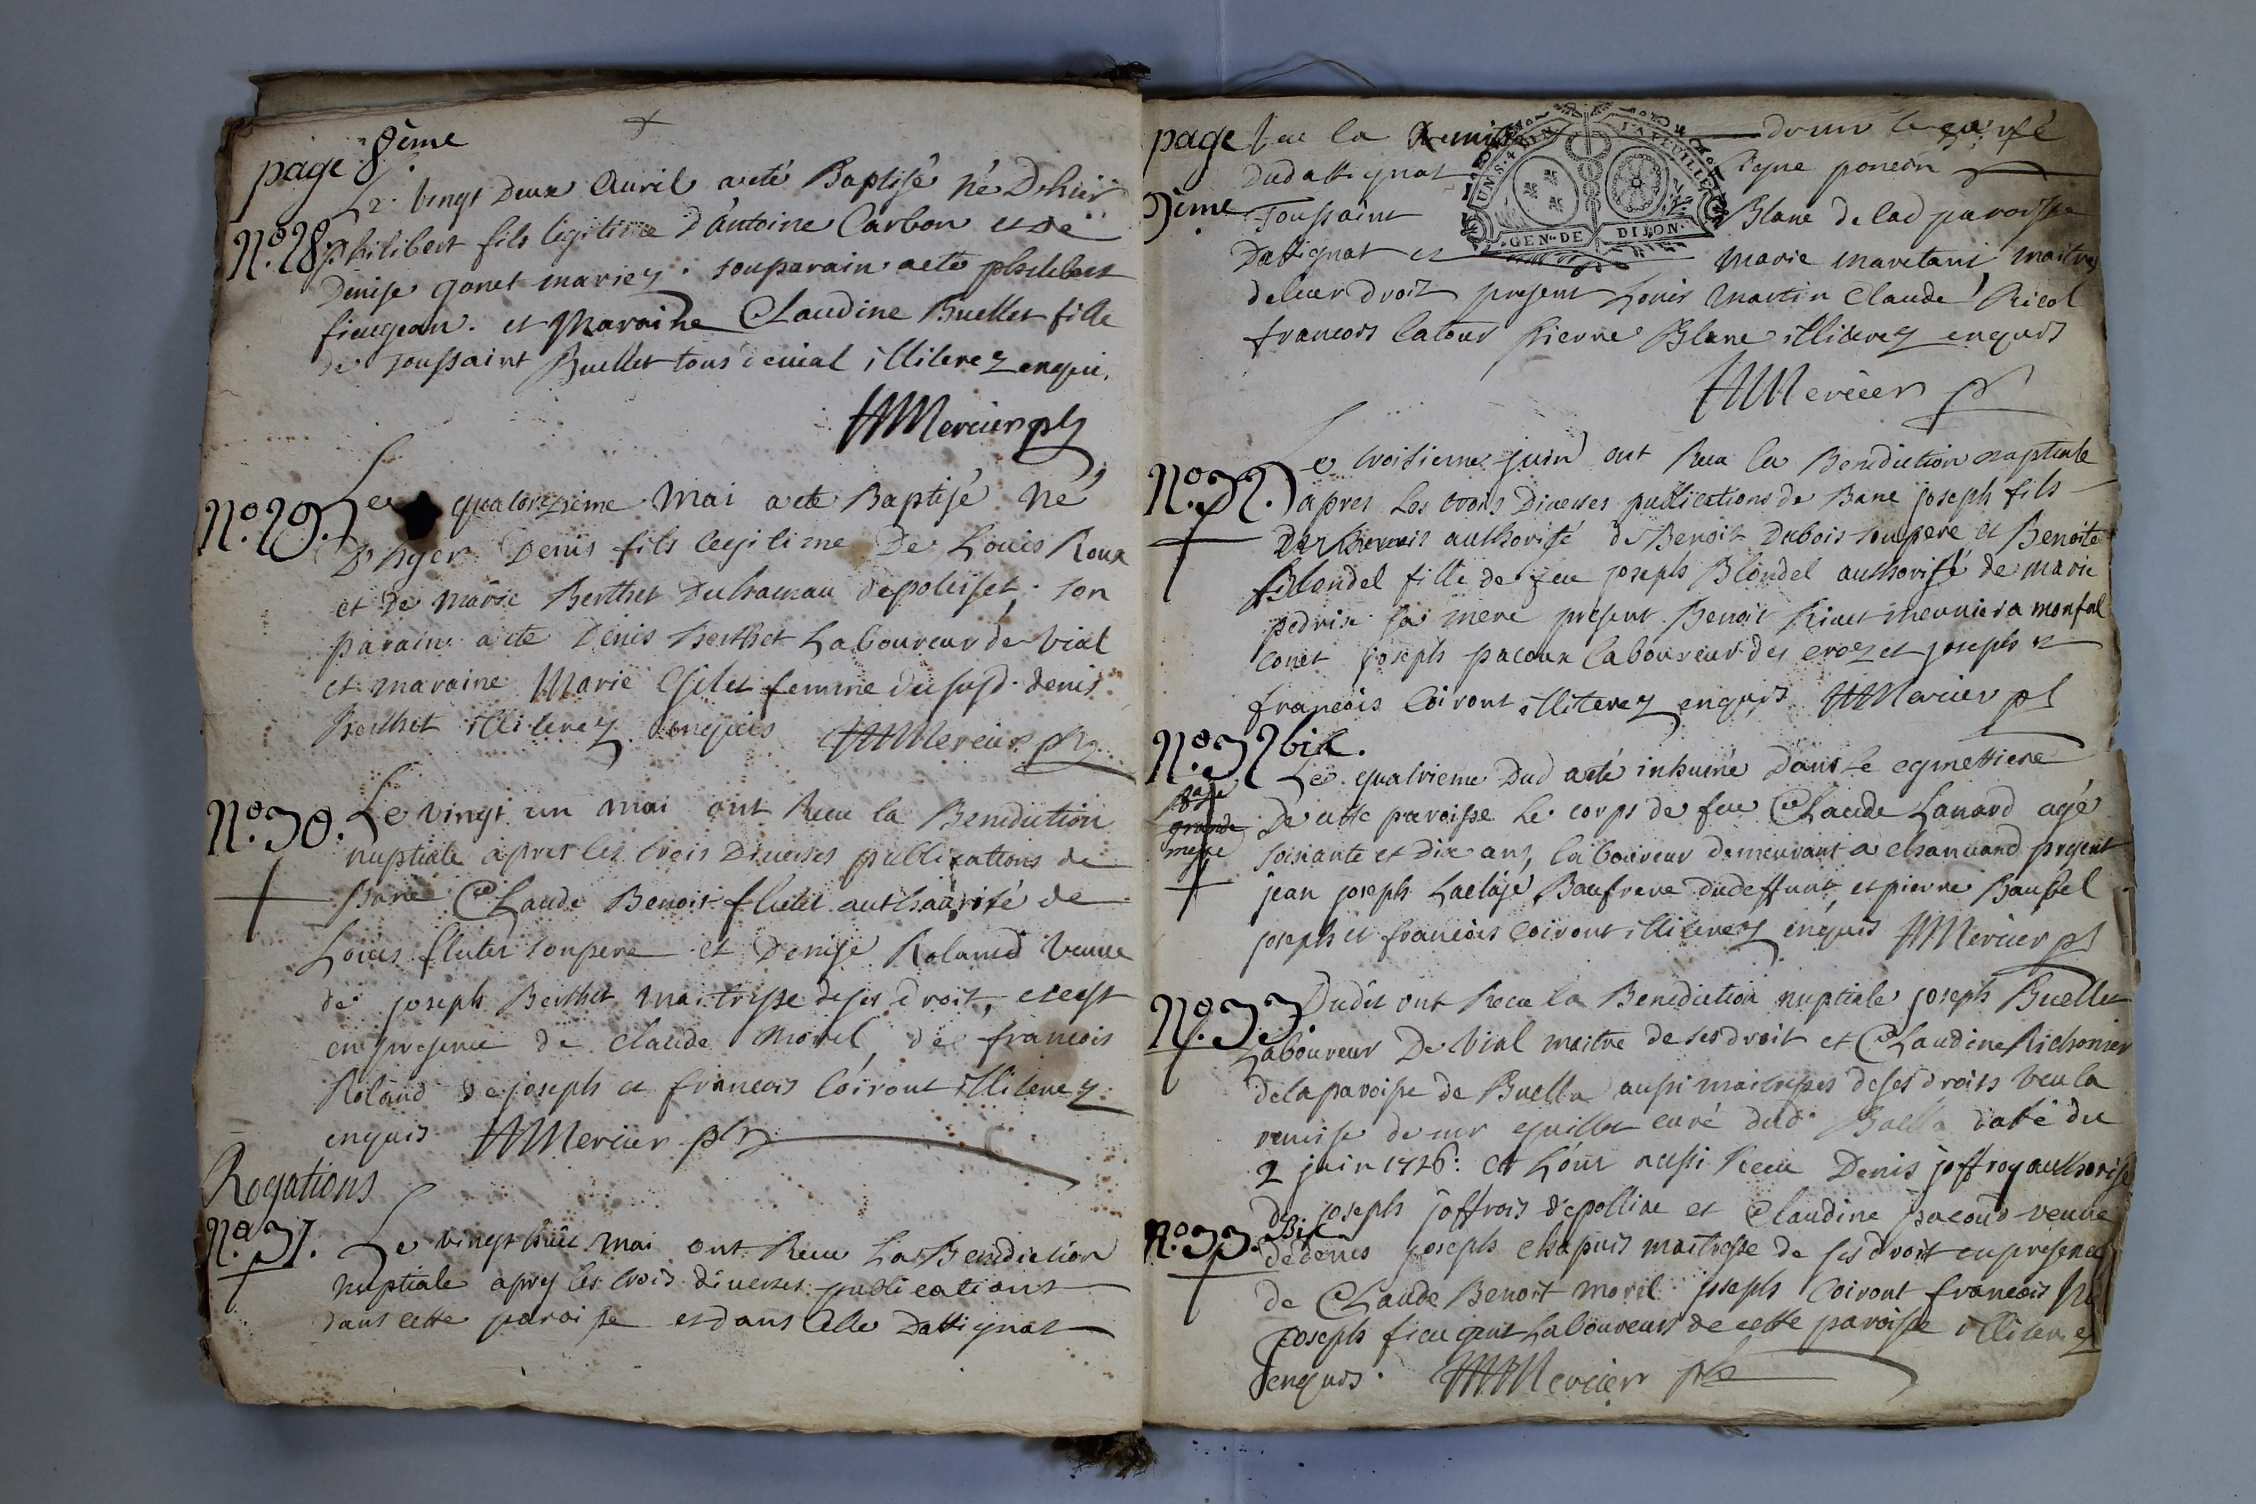 page 8ème
Le vingt Deux Avril aeté Baptisé né Dhier
N.º 28. philibert fils legitime d'antoine Carbon et de
Denise gonet mariez. son parain aeté philibert
fieugean. et Maraine Claudine Buellet fille
de Toussaint Buellet tous de vial illiterez enqui.
Mercier
N.º 29. Le quatorzieme Mai aeté Baptisé né
D'hyer Denis fils legitime De Louis Roux
et De Marie Berthet Du hameau de polisset, son
parain aeté Denis Berthet Laboureur de vial
et maraine Marie Gilet femme du susd. denis
Berthet illiterez enquis Mercier
N.º 30. Le vingt un mai ont Receu la Benediction
nuptiale apres les trois Diverses publications de
Bane Claude Benoit flutet authaurisé de
Louis flutet son pere et Denise Roland veuve
de joseph Berthet maitresse de ses droit, et cest
en presence de Claude Morel, de francois
Roland de joseph et francois Coiront illiterez
enquis Mercier
Rogations
N.º 31. Le vingt huit mai ont Receu La Benediction
nuptiale apres les trois diverses publications
dans cette paroisse et dans Celle Dattignat
page 9ème
la Remise curé
Dudattignat signe poncin
Toussaint Blanc de lad paroisse
UN S. 4 DEN. LA FEUILLE
GEN. DE DIION
Dattignat et Marie maitres
deleur droit present Louis Martin Claude Ricol
francois Latour pierre Blanc illiterez enquis
Mercier
N.º 32. Le troisieme juin ont Receu la Benediction nuptiale
apres Les trois Diverses publications de Bane joseph fils
authorisé de Benoit Dubois son pere et Benoite
Blondel fille de feu joseph Blondel authorisé de marie
pedrix sa mere present Benoit Rivet meunier a monfal
conet joseph pacoux laboureur des croz et joseph et
francois Coiront illiterez enquis Mercier
N.º 32 bis.
Le quatrieme Dud aeté inhumé dans Le cymettiere
grande mere De cette paroisse Le corps de feu Claude Lanard agé
soisiante et dix ans, laboureur demeurant a chanuard present
jean joseph Beaufrere dudeffunt, et pierre
joseph et francois Coiront illiterez enquis Mercier
N.º 33. Dudit ont Receu la Benediction nuptiale joseph Buellet
Laboureur De Vial maitre de ses droit et Claudine Richonier
dela paroisse de Buella aussi maitresses deses droits veu la
remise de mr curé dud. Buella daté du
2 juin 1726: et L'ont aussi Receu Denis joffroy authorisé
de joseph joffrois depolliae et Claudine pacoud veuve
N.º 33. Bis de denis joseph chapuis maitresse de ses droit en presence
de Claude Benoit moril joseph Coiront francois
joseph fieugent Laboureurs de cette paroisse illiterez
enquis. Mercier